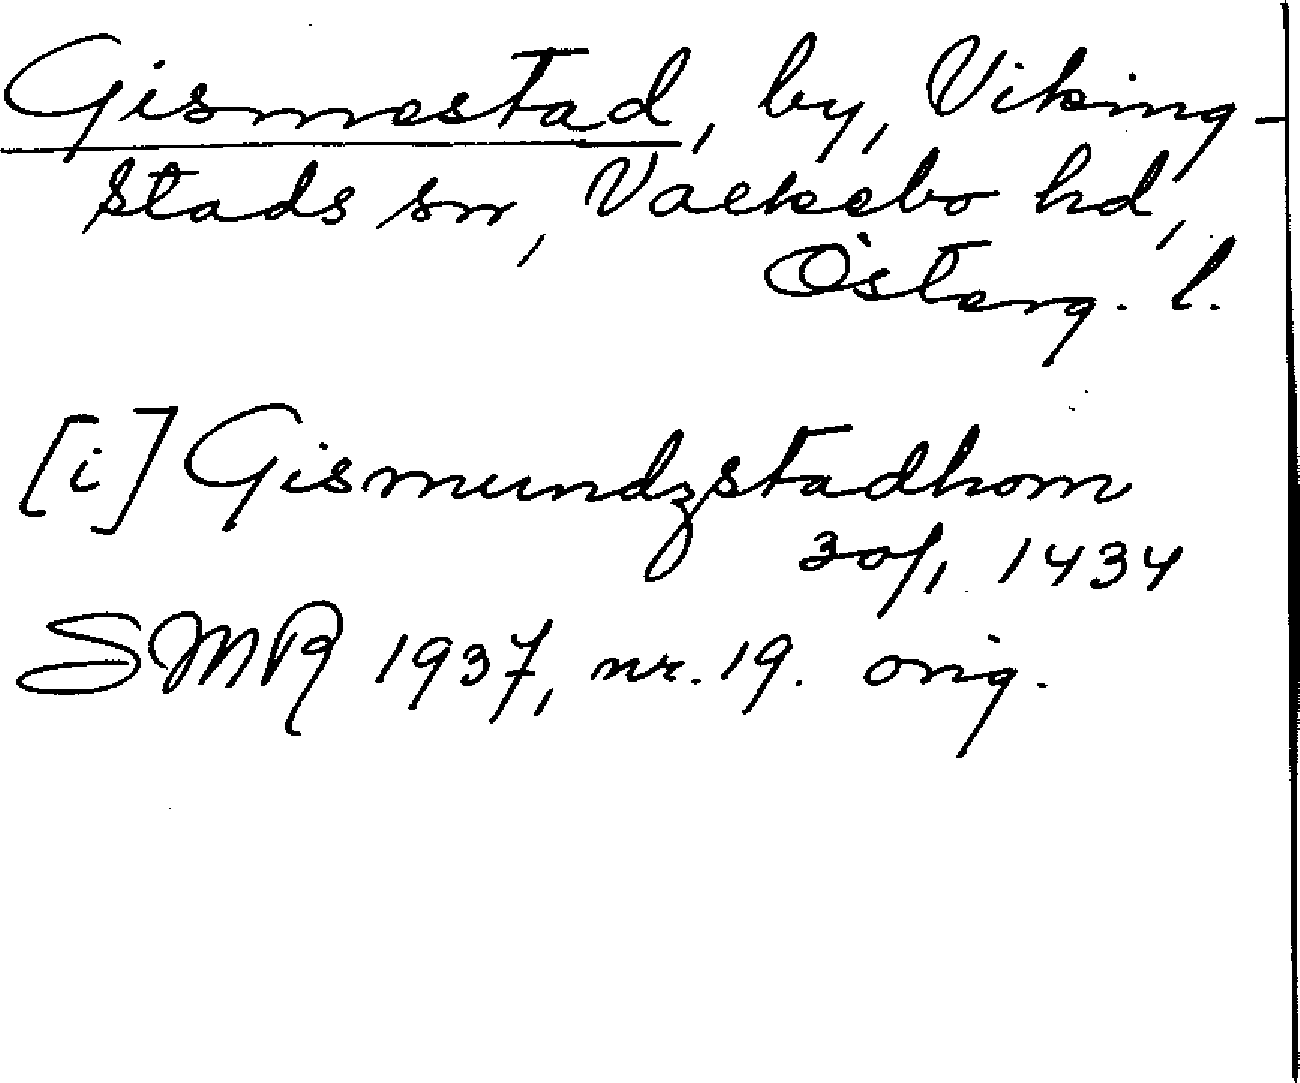 Gismestad, by, Viking-
stads sn, Valkebo hd,
Österg. l.
[i] Gismundzstadhom
30/1 1434
SMR 1937, nr. 19. orig.